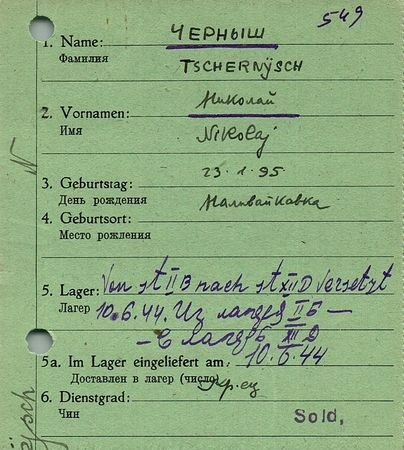 549
ЧЕРНЫШ
1. Name:
Фамилия
TSCHERNÿSCH
Николай
2. Vornamen:
Имя
Nikolaj
23·1·95
3. Geburtstag:
День рождения
Наливайковка
4. Geburtsort:
Место рождения
5. Lager: Von st II B nach st XII D versetzt
Лагерь
10.6.44. Из лагеря II Б —
— в лагерь XII D
5a. Im Lager eingeliefert am: 10.6.44
Доставлен в лагерь (число)
6. Dienstgrad:
Чин
Sold,